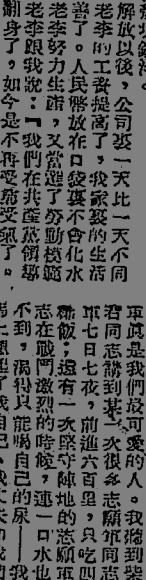 解放以後，公司裂一天比一天不同
老李的工資提高了，我家裏的生活
善了。人民幣放在口袋裏不會化水
老李努力生產，又當選了勞動模範
老李跟我說：「我們在共產黨領導
翻身了，如今是不再受窮受氣了。
平眞是我們最可愛的人。我聽到柴
君同志講到某一次很多志願軍同志
軍七日七夜，前進六百里，只吃四
稀飯；還有一次堅守陣地的志願軍
志在戰鬥激烈的時候，連一口水也
不到，渴得只能喝自己的尿——我